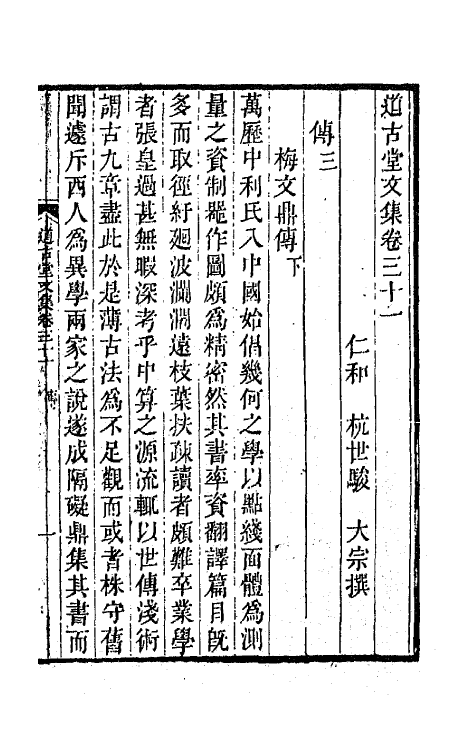 道古堂文集卷三十一
仁和 杭世駿 大宗撰
傳三
梅文鼎傳下
萬歷中利氏入中國始倡幾何之學以點綫面體為測
量之資制器作圖頗為精密然其書率資翻譯篇目既
多而取徑紆廻波瀾濶遠枝葉扶疎讀者頗難卒業學
者張皇過甚無暇深考乎中算之源流輒以世傳淺術
謂古九章盡此於是薄古法為不足觀而或者株守舊
聞遽斥西人為異學兩家之說遂成隔礙鼎集其書而
道古堂文集卷三十一 傳 一